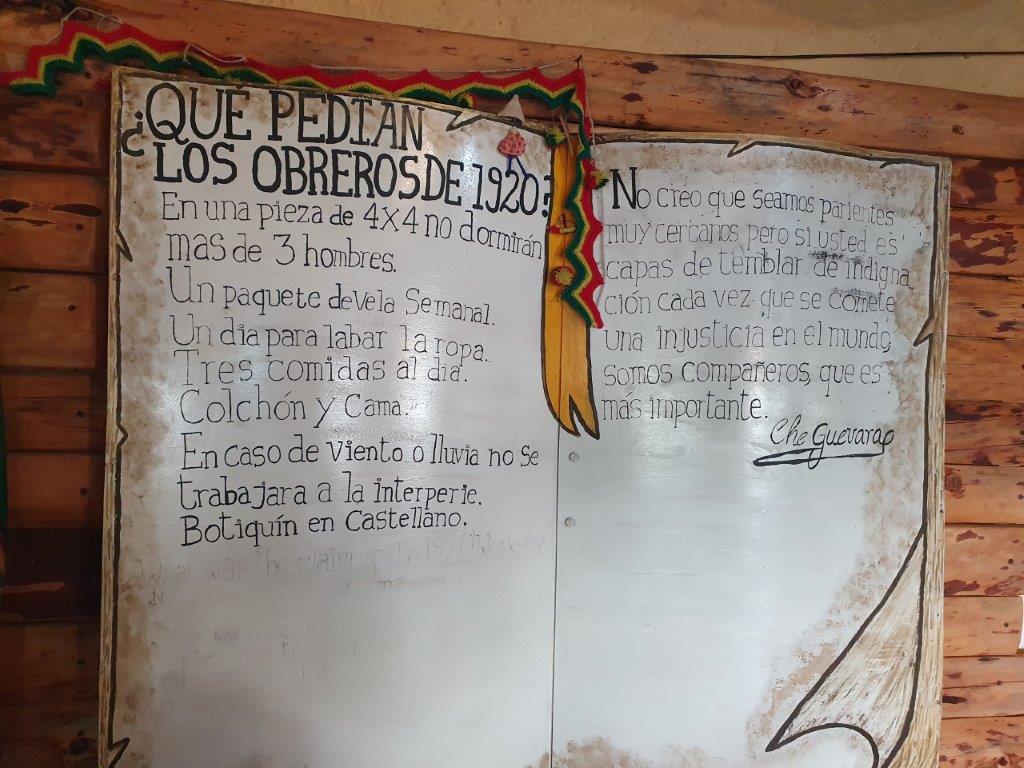 ¿QUÉ PEDIAN
LOS OBREROS DE 1920?
En una pieza de 4x4 no dormirán
mas de 3 hombres.
Un paquete de vela Semanal.
Un dia para labar la ropa.
Tres comidas al dia.
Colchón y Cama.
En caso de viento o lluvia no se
trabajara a la interperie.
Botiquín en Castellano.
What was the claim of the 1920
No creo que seamos parientes
muy cercanos pero si usted es
capas de temblar de indigna
ción cada vez que se comete
una injusticia en el mundo,
somos compañeros, que es
más importante.
Che Guevara